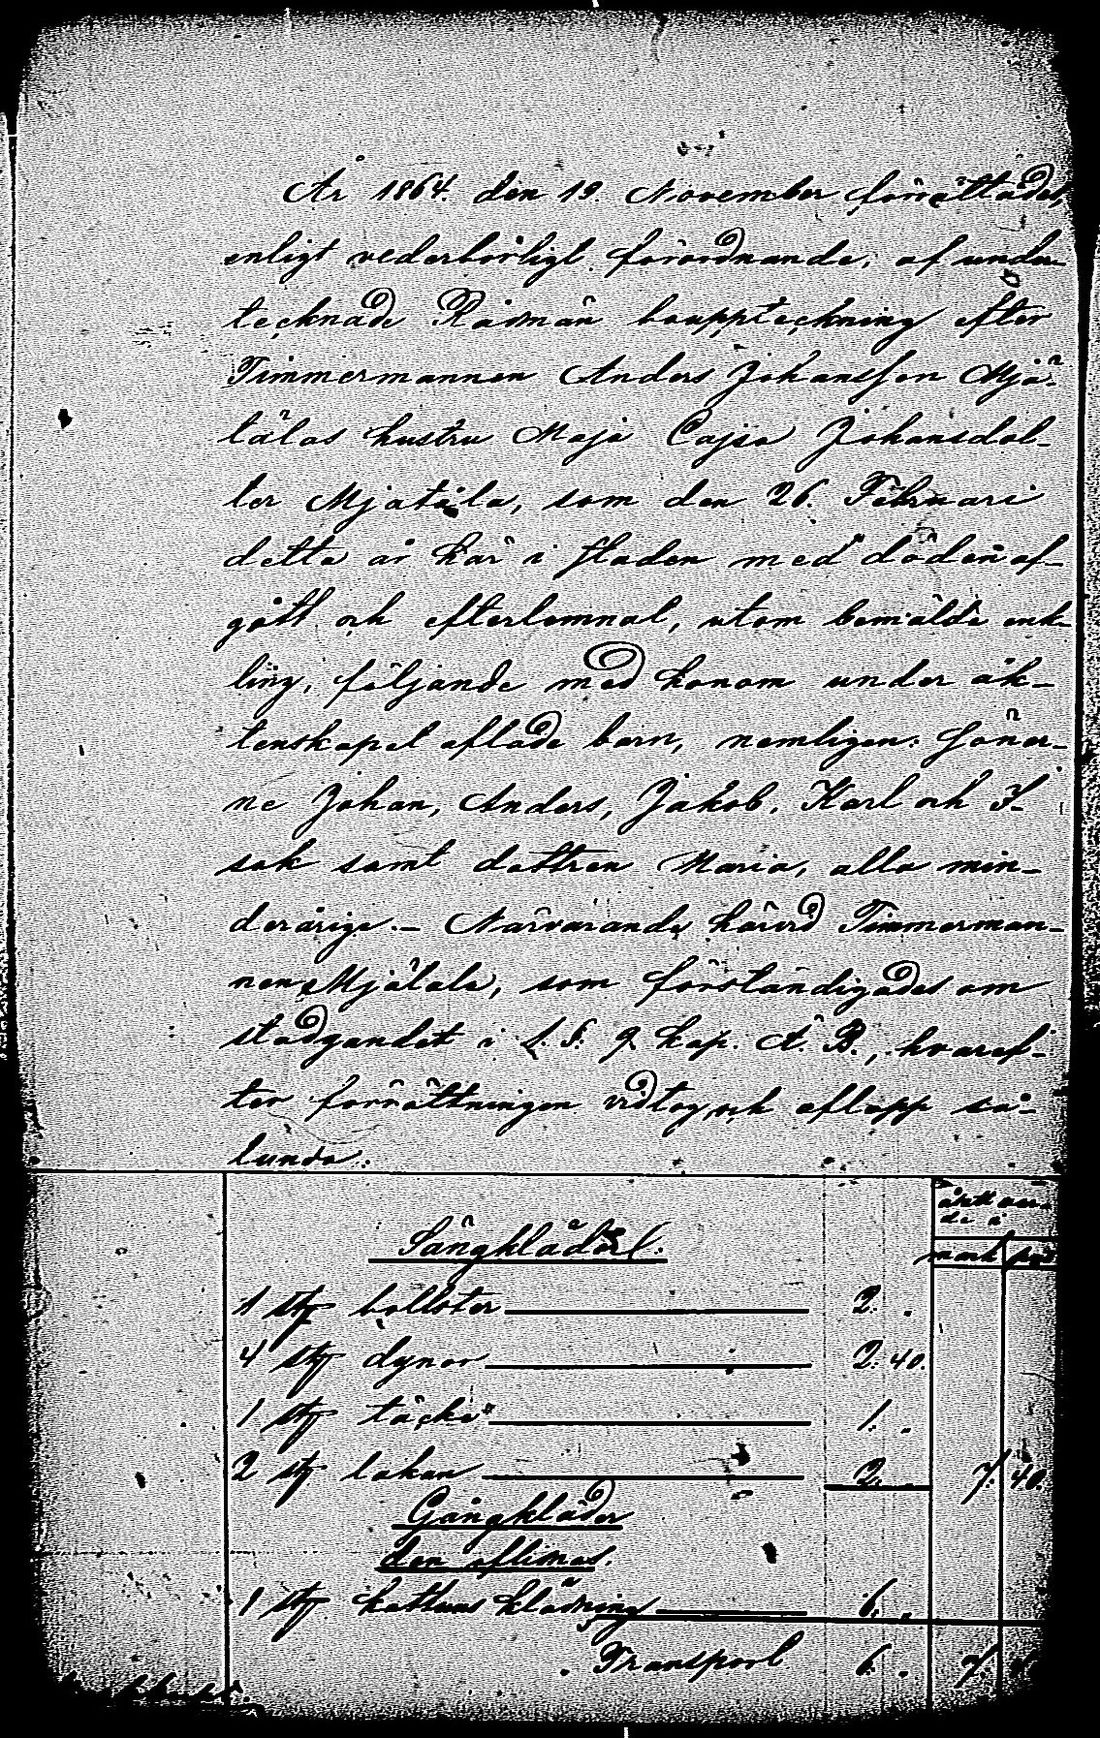 År 1864. den 19. November förrättades,
enligt vederbörligt förordnande, af under-
tecknade Rådmän bouppteckning efter
Timmermannen Anders Johansson Mjä-
tälas hustru Maja Cajsa Johansdot-
ter Mjätälä, som den 26. Februari
detta år här i staden med döden af-
gått och efterlemnat, utom bemälde enk-
ling, följande med honom under äk-
tenskapet aflade barn, nemligen: Söner-
ne Johan, Anders, Jakob, Karl och I-
sak samt dottren Maria, alla min-
derårige. – Närvarande härvid Timmerman-
nen Mjätälä, som förständigades om
stadgandet i 1. §. 9 kap. Ä. B., hvaref-
ter förrättningen vidtog och aflopp så-
lunda:
mark
Sängkläder:
1 st bollster 2. „
4 st dynor 2. 40.
1 st täcke 1. „
2 st lakan 2. „ 7. 40.
Gångkläder
den aflidnas.
1 st kattuns klädning 6. „
Transport 6. „ 7.